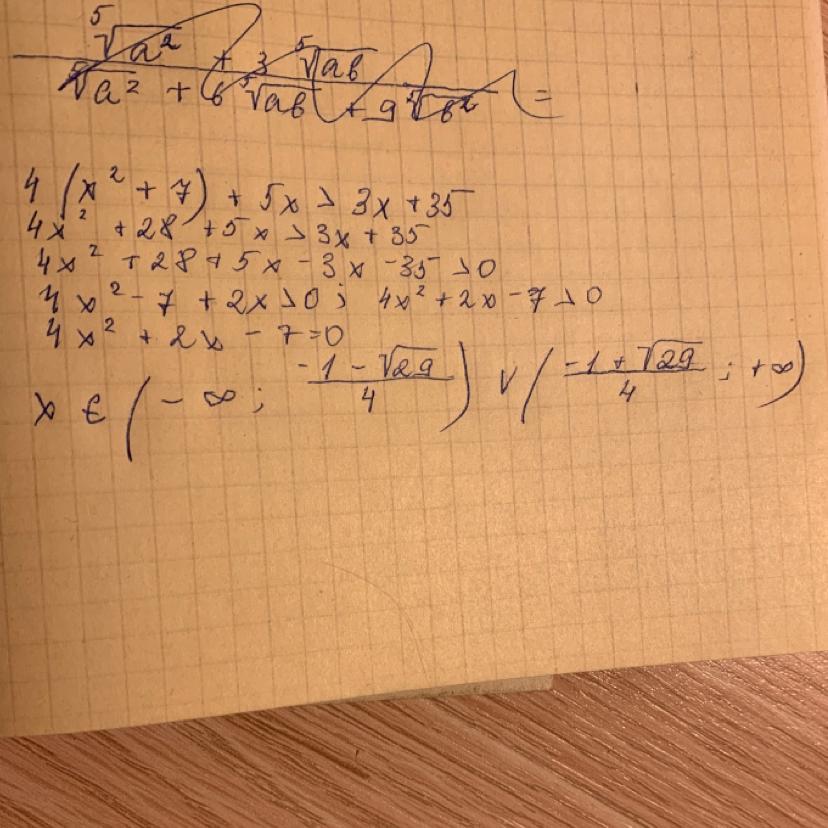 ⁵√a² + 3 ⁵√ab
⁵√a² + 6 ⁵√ab + 9 ⁵√b² =
4 (x² + 7) + 5x > 3x + 35
4x² + 28 + 5x > 3x + 35
4x² + 28 + 5x - 3x - 35 > 0
4x² - 7 + 2x > 0; 4x² + 2x - 7 > 0
4x² + 2x - 7 = 0
x ∈ (-∞; (-1 - √29)/4) ∨ ((-1 + √29)/4; +∞)